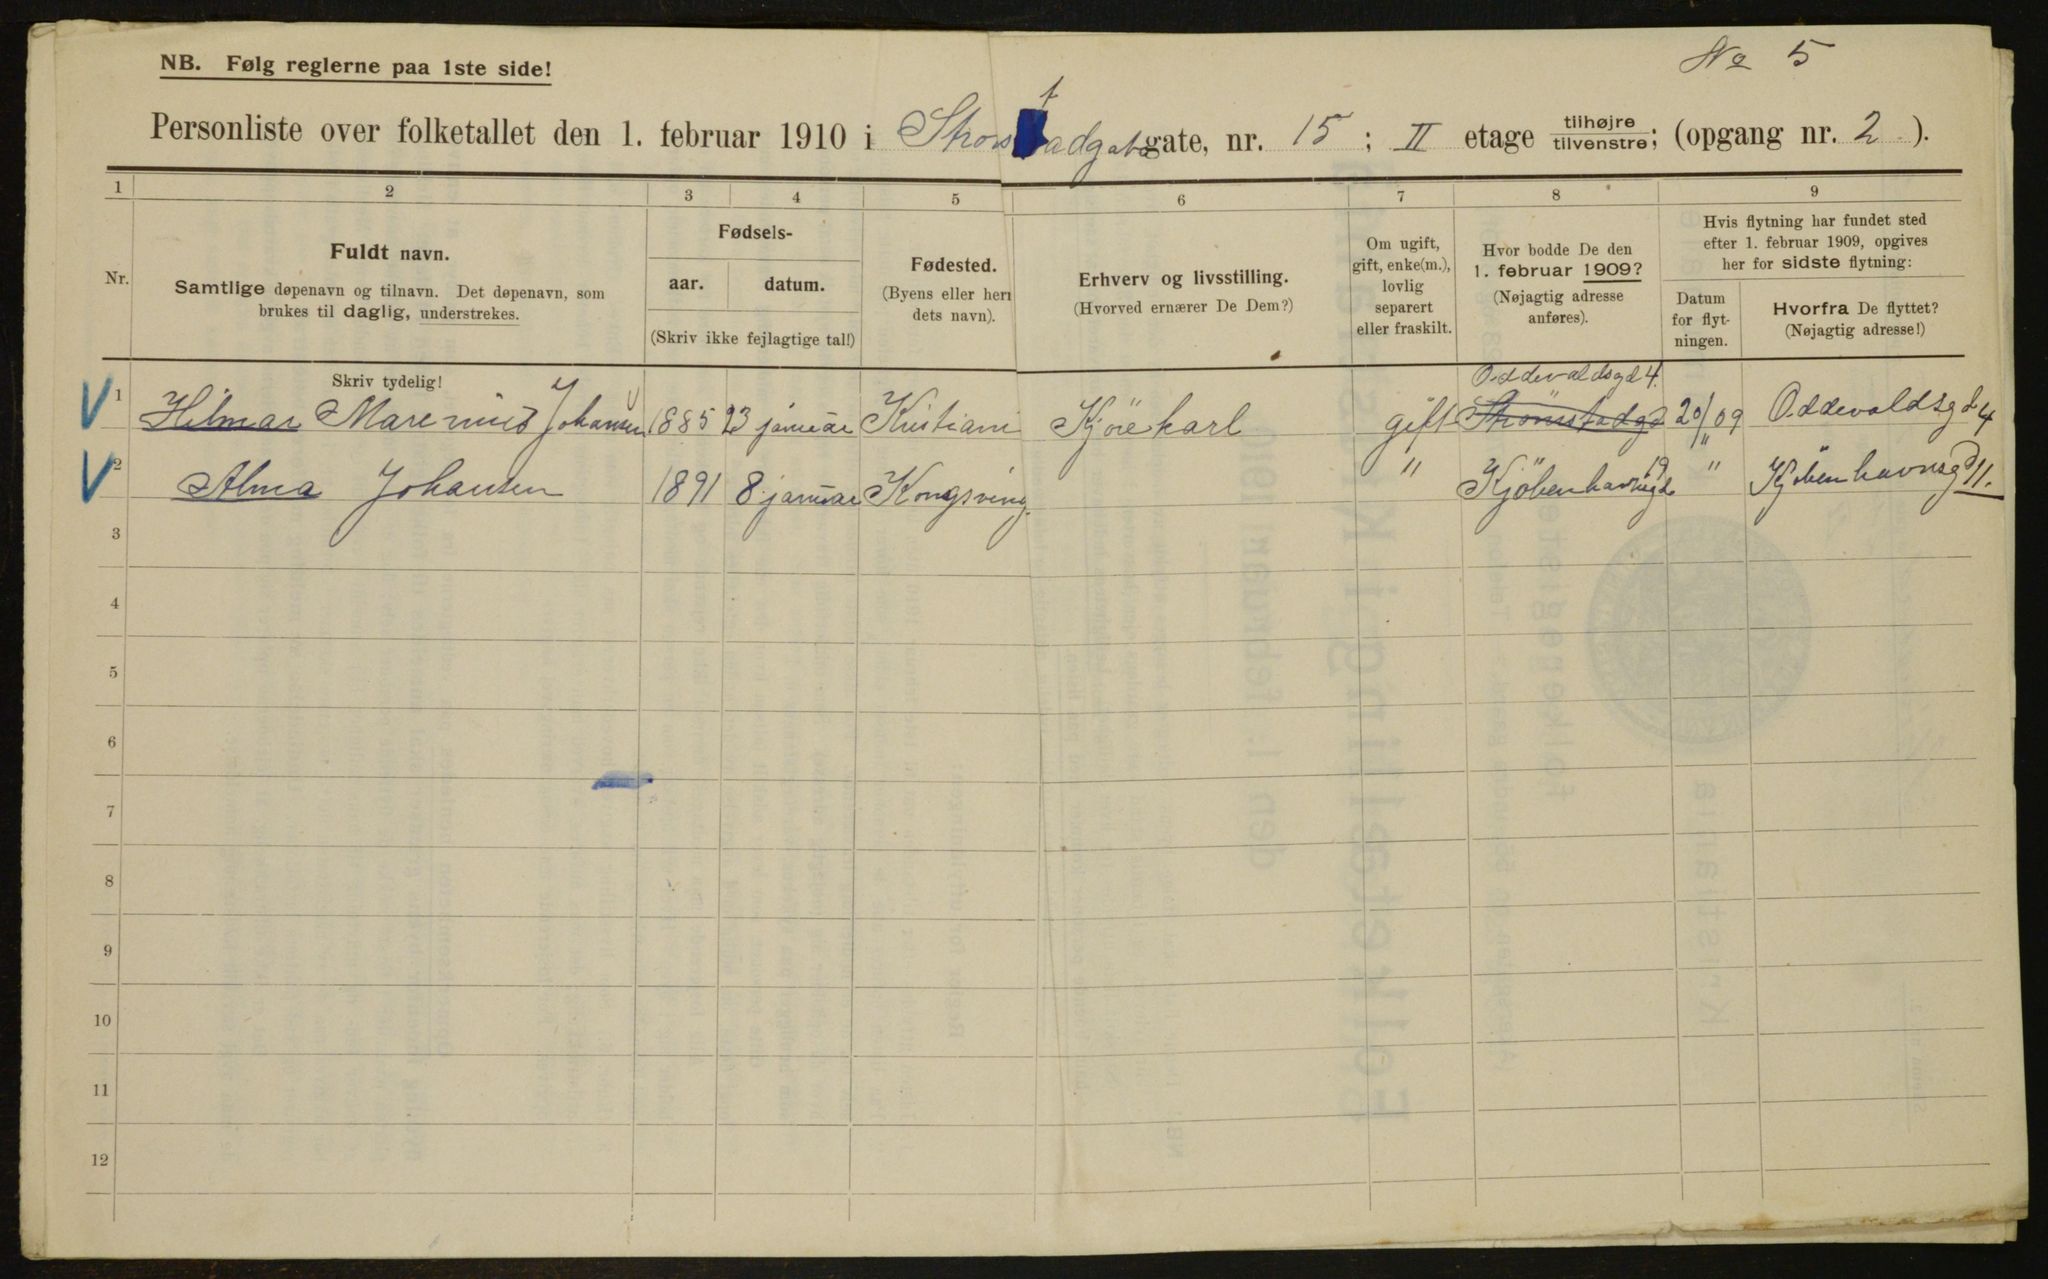 NB. Følg reglerne paa 1ste side!
No 5
Personliste over folketallet den 1. februar 1910 i Strömstadgata gate, nr. 15 ; II etage tilhøjre/tilvenstre; (opgang nr. 2 ).
1 2 3 4 5 6 7 8 9
Nr.
Fuldt navn.
Samtlige døpenavn og tilnavn. Det døpenavn, som
brukes til daglig, understrekes.
Fødsels-
aar. datum.
(Skriv ikke fejlagtige tal!)
Fødested.
(Byens eller her
dets navn).
Erhverv og livsstilling.
(Hvorved ernærer De Dem?)
Om ugift,
gift, enke(m.),
lovlig
separert
eller fraskilt.
Hvor bodde De den
1. februar 1909?
(Nøjagtig adresse
anføres).
Hvis flytning har fundet sted
efter 1. februar 1909, opgives
her for sidste flytning:
Datum
for flyt-
ningen.
Hvorfra De flyttet?
(Nøjagtig adresse!)
Skriv tydelig!
Oddevaldsgd 4.
1 Hilmar Marenius Johansen 1885 23 januar Kristiani Kjörekarl gift Strömstadgd 20/ 09 Oddevaldsgd 4
2 Alma Johansen 1891 8 januar Kongsving " Kjöbenhavnsgd " Kjöbenhavnsgd 11.
3
4
5
6
7
8
9
10
11
12